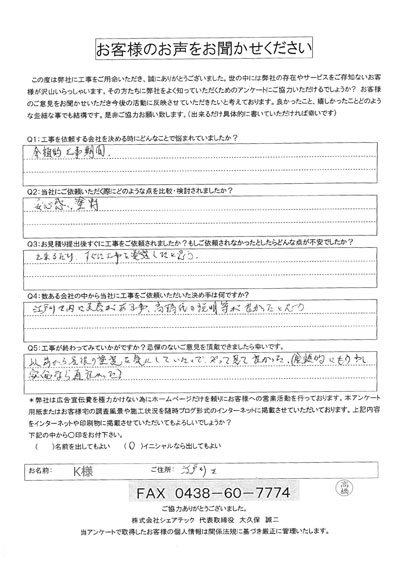 お客様のお声をお聞かせください
この度は弊社に工事をご用命いただき、誠にありがとうございました。世の中には弊社の存在やサービスをご存知ないお客
様が沢山いらっしゃいます。その方たちに弊社をよく知っていただくためのアンケートにご協力いただけるでしょうか？ お客様
のご意見をお聞かせいただき今後の活動に反映させていただきたいと考えております。良かったこと、嬉しかったことどのよう
な些細な事でも結構です。是非ご協力お願い致します。（出来るだけ具体的に書いていただければ幸いです）
Q1：工事を依頼する会社を決める時にどんなことで悩まれていましたか？
金額的 工事期間
Q2：当社にご依頼いただく際にどのような点を比較・検討されましたか？
安心感、塗料
Q3：お見積り提出後すぐに工事をご依頼されましたか？もしご依頼されなかったとしたらどんな点が不安でしたか？
すぐに工事を
Q4：数ある会社の中から当社に工事をご依頼いただいた決め手は何ですか？
江戸川区内に
Q5：工事が終わってみていかがですか？忌憚のないご意見を頂戴できましたら幸いです。
以前から屋根の塗装を気にしていたので、やって見て良かった。
＊弊社は広告宣伝費を極力かけない為にホームページだけを頼りにお客様への営業活動を行っております。本アンケート
用紙またはお客様宅の調査風景や施工状況を随時ブログ形式のインターネットに掲載させていただいております。上記内容
をインターネットや印刷物に掲載させていただいてもよろしいでしょうか？
下記の中から〇印をお付下さい。
（　）名前を出してもよい （〇）イニシャルなら出してもよい
お名前： K様 ご住所： 江戸川区
FAX 0438-60-7774
高橋
ご協力ありがとうございました。
株式会社シェアテック 代表取締役 大久保 誠二
当アンケートで取得したお客様の個人情報は関係法規に基づき厳正に管理いたします。